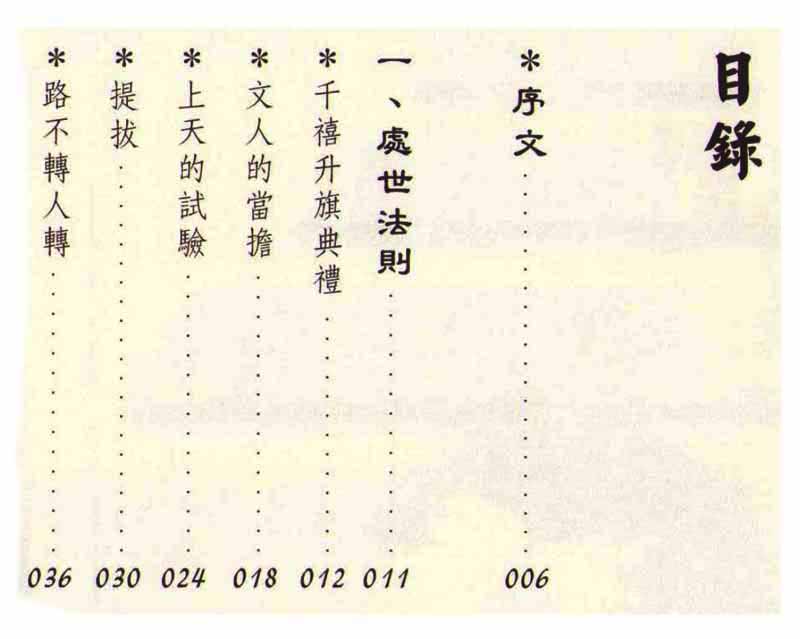 目錄
＊序文……………………006
一、處世法則……………………011
＊千禧升旗典禮……………………012
＊文人的當擔……………………018
＊上天的試驗……………………024
＊提拔……………………030
＊路不轉人轉……………………036